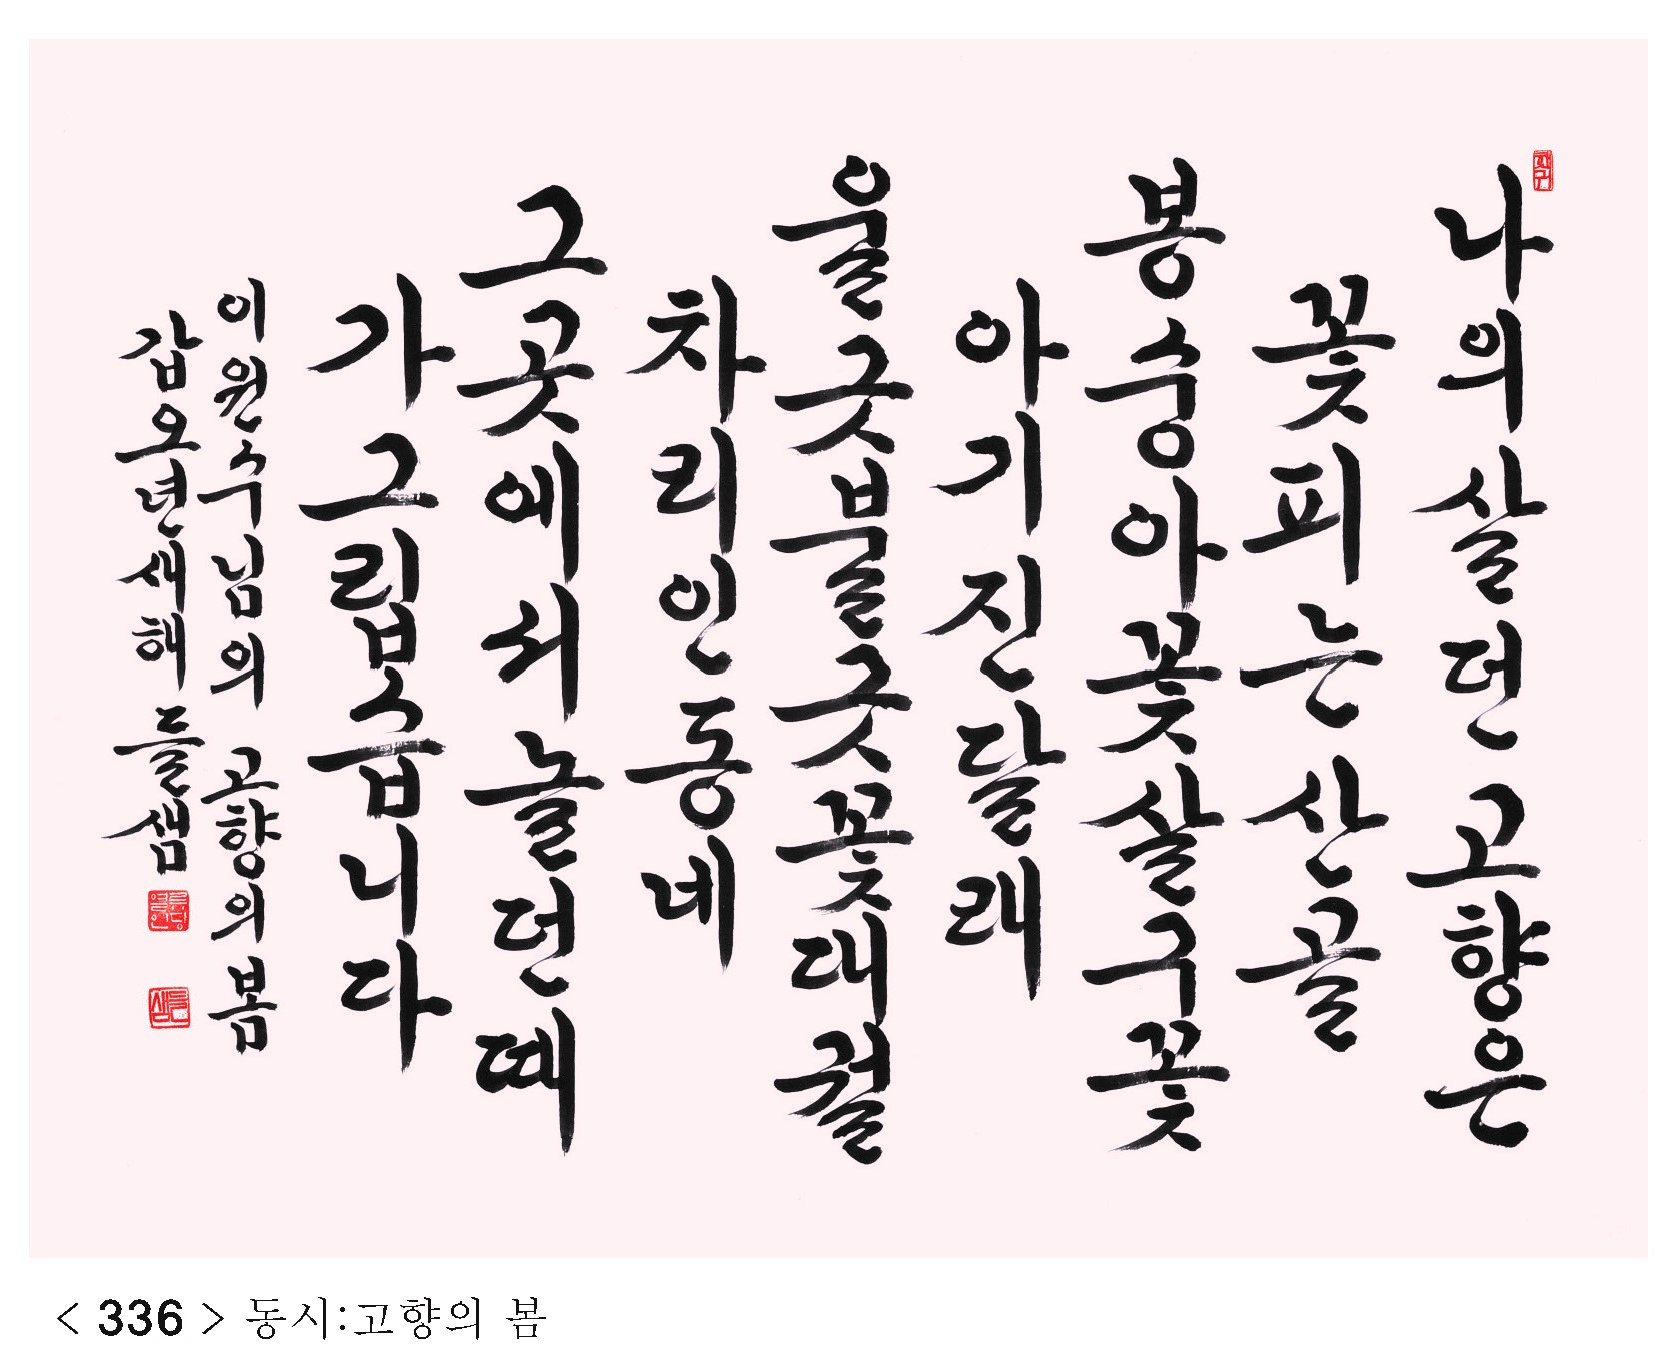 나의 살던 고향은
꽃피는 산골
봉숭아꽃 살구꽃
아기진달래
울긋불긋 꽃대궐
차리인 동네
그곳에서 놀던때
가 그립습니다
이원수님의 고향의 봄
갑오년 새해 들샘
< 336 > 동시:고향의 봄